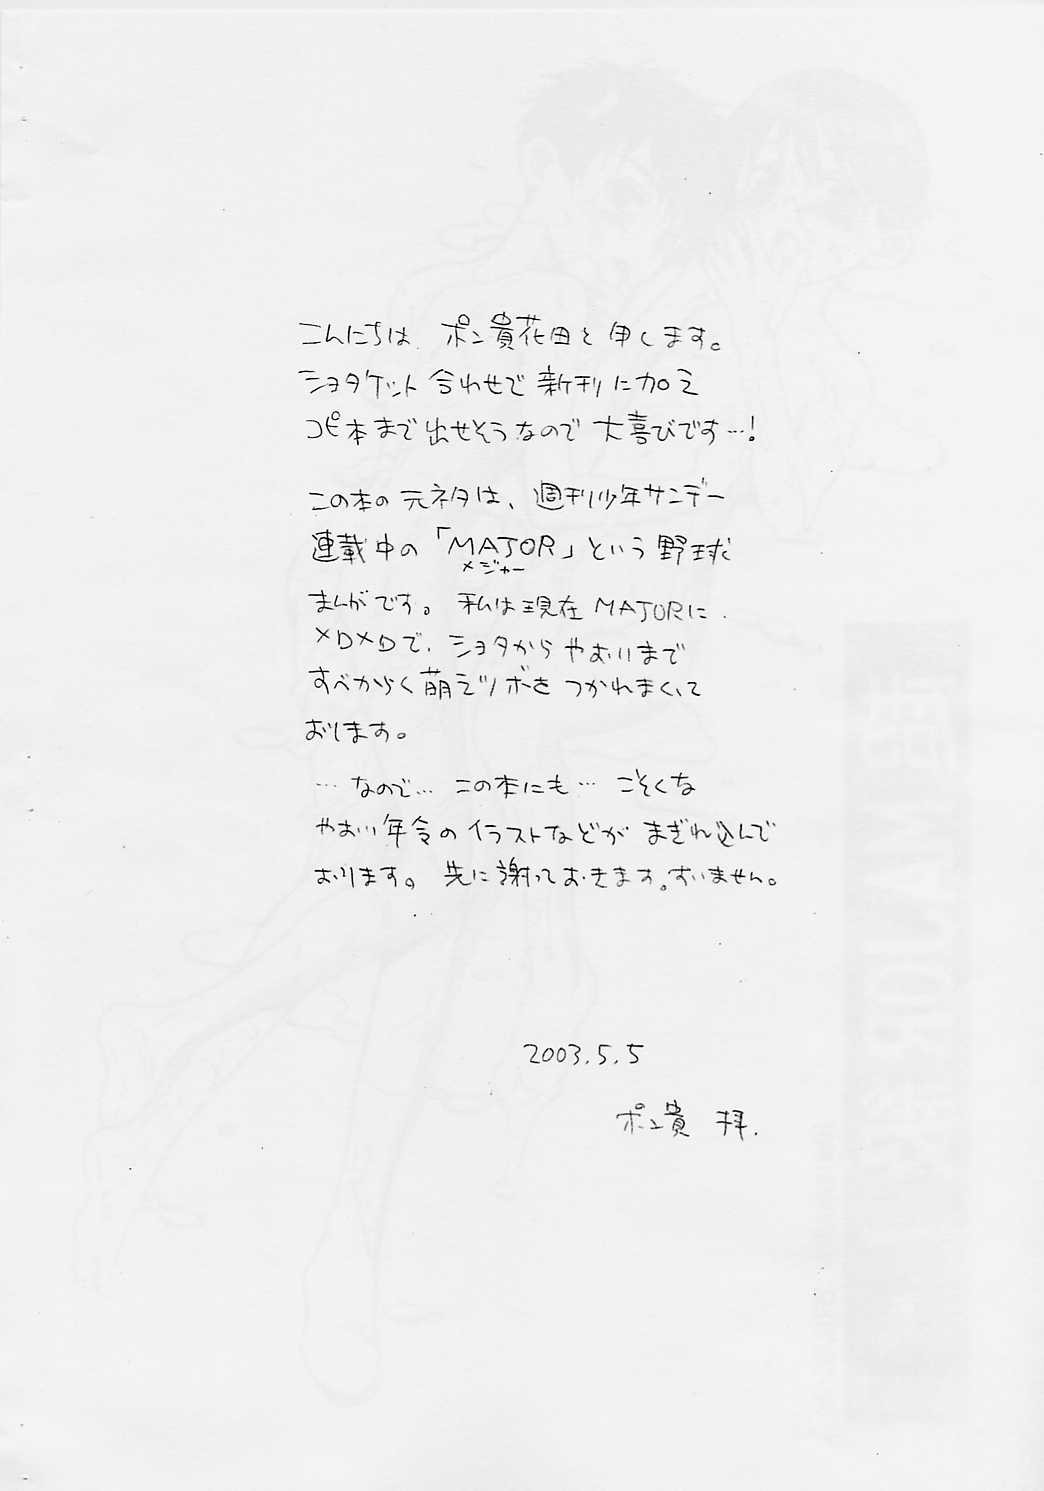 こんにちは、ポン貴花田と申します。
ショタケット合わせで新刊に加え
コピ本まで出せそうなので大喜びです…!
この本の元ネタは、週刊少年サンデー
連載中の「MAJOR」という野球
メジャー
まんがです。私は現在MAJORに
メロメロで、ショタからやおいまで
すべからく萌えツボをつかれまくって
おります。
…なので…この本にも…ごそくな
やおい年令のイラストなどがまぎれ込んで
おります。先に謝っておきます。すいません。
2003.5.5
ポン貴 拝.